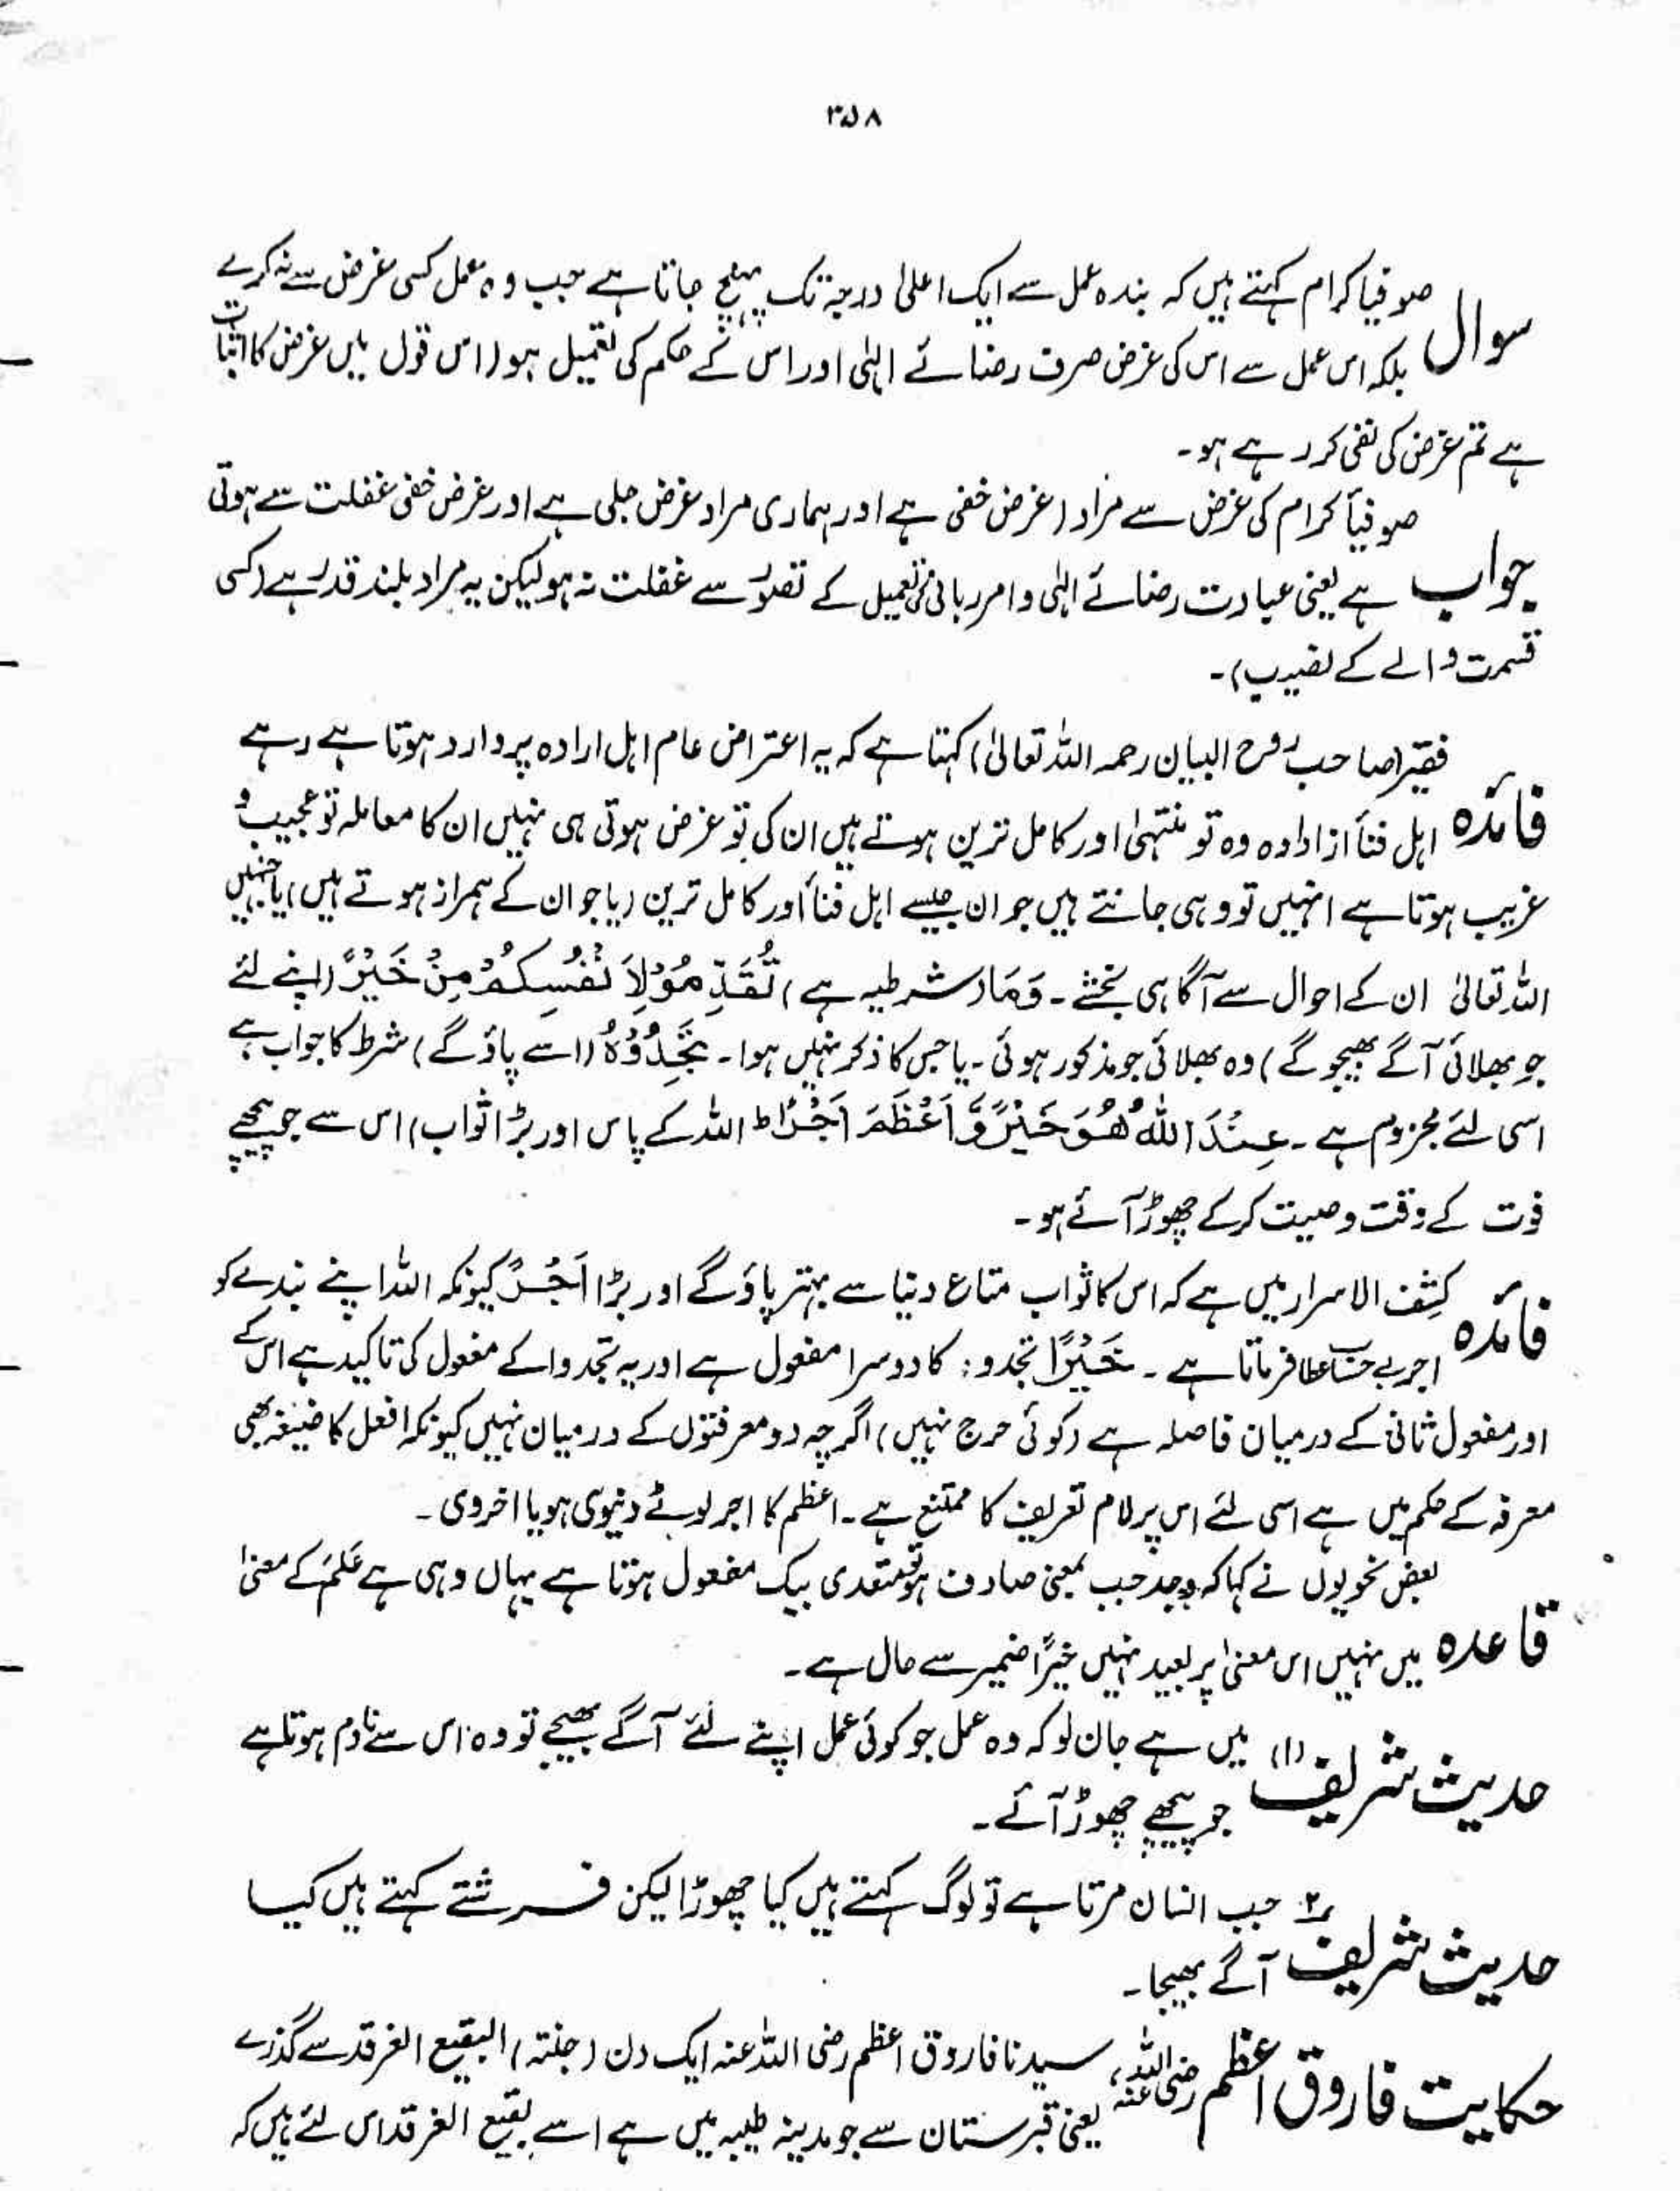 ۳۵۸
صوفیا کرام کہتے ہیں کہ بندہ عمل سے ایک اعلیٰ درجہ تک پہنچ جاتا ہے جب وہ عمل کسی غرض سے نہ کرے
سوال بلکہ اس عمل سے اس کی غرض صرف رضائے الہٰی اور اس کے حکم کی تعمیل ہو (اس قول میں غرض کا اثبات
ہے تم غرض کی نفی کر رہے ہو۔
صوفیأ کرام کی غرض سے مراد (غرض خفی ہے اور ہماری مراد غرض جلی ہے اور غرض خفی غفلت سے ہوتی
جواب ہے یعنی عبادت رضائے الہٰی و امر ربانی کی تعمیل کے تصور سے غفلت نہ ہو لیکن یہ مراد بلند قدر ہے (کسی
قسمت والے کے نصیب)۔
فقیر (صاحب روح البیان رحمہ اللہ تعالیٰ) کہتا ہے کہ یہ اعتراض عام اہل ارادہ پر وارد ہوتا ہے رہے
فائدہ اہل فنأ از ارادہ وہ تو منتہیٰ اور کامل ترین ہوتے ہیں ان کی تو غرض ہوتی ہی نہیں ان کا معاملہ تو عجیب و
غریب ہوتا ہے انہیں تو وہی جانتے ہیں جو ان جیسے اہل فنأ اور کامل ترین (یا جو ان کے ہمراز ہوتے ہیں) یا جنہیں
اللہ تعالیٰ ان کے احوال سے آگاہی بخشے۔ وَمَا (شرطیہ ہے) تُقَدِّمُوْلِاَ نْفُسِکُمْ مِنْ خَیْرً (اپنے لئے
جو بھلائی آگے بھیجو گے) وہ بھلائی جو مذکور ہوئی۔ یا جس کا ذکر نہیں ہوا۔ تَجِدُوْہُ (اسے پاؤ گے) شرط کا جواب ہے
اسی لئے مجزوم ہے۔ عِنْدَ اللہُ ھُوَ خَیْرً وَّ اَعْظَمَ اَجْرًا ط اللہ کے پاس اور بڑا ثواب) اس سے جو پیچھے
فوت کے وقت وصیت کر کے چھوڑ آئے ہو۔
کشف الاسرار میں ہے کہ اس کا ثواب متاع دنیا سے بہتر پاؤ گے اور بڑا اَجْرً کیونکہ اللہ اپنے بندے کو
فائدہ اجر بے حساب عطا فرماتا ہے۔ خَیْرًا تجدو: کا دوسرا مفعول ہے اور یہ تجدوا کے مفعول کی تاکید ہے اس کے
اور مفعول ثانی کے درمیان فاصلہ ہے (کوئی حرج نہیں) اگرچہ دو معرفتوں کے درمیان نہیں کیونکہ افعل کا صیغہ بھی
معرفہ کے حکم میں ہے اسی لئے اس پر لام تعریف کا ممتنع ہے۔ اعظم کا اجر لوٹے دنیوی ہو یا اخروی۔
بعض نحویوں نے کہا کہ وجد جب بمعنیٰ صادف ہو تو متعدی بیک مفعول ہوتا ہے یہاں وہی ہے عَلمَ کے معنیٰ
قاعدہ میں نہیں اس معنیٰ پر بعید نہیں خیرًا ضمیر سے حال ہے۔
حدیث شریف (۱) میں ہے جان لو کہ وہ عمل جو کوئی عمل اپنے لئے آگے بھیجے تو وہ اس سے نادم ہوتا ہے
جو پیچھے چھوڑ آئے۔
حدیث شریف ۲ جب انسان مرتا ہے تو لوگ کہتے ہیں کیا چھوڑا لیکن فرشتے کہتے ہیں کیا
آگے بھیجا۔
حکایت فاروق اعظم رضی اللہ عنہ سیدنا فاروق اعظم رضی اللہ عنہ ایک دن (جنتہ) البقیع الغرقد سے گذرے
یعنی قبرستان سے جو مدینہ طیبہ میں ہے اسے بقیع الغرقد اس لئے ہیں کہ